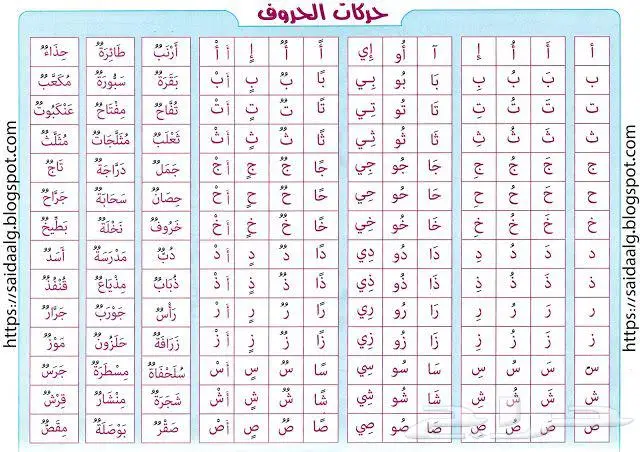 حركات الحروف
أ أَ أُ إِ آ أُو إِي أً أٌ إٍ أَأْ أَرْنَبٌ طَائِرَةٌ حِذَاءٌ
ب بَ بُ بِ بَا بُو بِي بًا بٌ بٍ أَبْ بَقَرَةٌ سَبُّورَةٌ مُكَعَّبٌ
ت تَ تُ تِ تَا تُو تِي تًا تٌ تٍ أَتْ تُفَّاحٌ مِفْتَاحٌ عَنْكَبُوتٌ
ث ثَ ثُ ثِ ثَا ثُو ثِي ثًا ثٌ ثٍ أَثْ ثَعْلَبٌ مُثَلَّجَاتٌ مُثَلَّثٌ
ج جَ جُ جِ جَا جُو جِي جًا جٌ جٍ أَجْ جَمَلٌ دَرَّاجَةٌ تَاجٌ
ح حَ حُ حِ حَا حُو حِي حًا حٌ حٍ أَحْ حِصَانٌ سَحَابَةٌ جَرَّاحٌ
خ خَ خُ خِ خَا خُو خِي خًا خٌ خٍ أَخْ خَرُوفٌ نَخْلَةٌ بَطِّيخٌ
د دَ دُ دِ دَا دُو دِي دًا دٌ دٍ أَدْ دُبٌّ مَدْرَسَةٌ أَسَدٌ
ذ ذَ ذُ ذِ ذَا ذُو ذِي ذًا ذٌ ذٍ أَذْ ذُبَابٌ مِذْيَاعٌ قُنْفُذٌ
ر رَ رُ رِ رَا رُو رِي رًا رٌ رٍ أَرْ رَأْسٌ جَوْرَبٌ جَرَّارٌ
ز زَ زُ زِ زَا زُو زِي زًا زٌ زٍ أَزْ زَرَافَةٌ حَلَزُونٌ مَوْزٌ
س سَ سُ سِ سَا سُو سِي سًا سٌ سٍ أَسْ سُلَحْفَاةٌ مِسْطَرَةٌ جَرَسٌ
ش شَ شُ شِ شَا شُو شِي شًا شٌ شٍ أَشْ شَجَرَةٌ مِنْشَارٌ قِرْشٌ
ص صَ صُ صِ صَا صُو صِي صًا صٌ صٍ أَصْ صَقْرٌ بَوْصَلَةٌ مِقَصٌّ
https://saidaalg.blogspot.com
https://saidaalg.blogspot.com
حراج